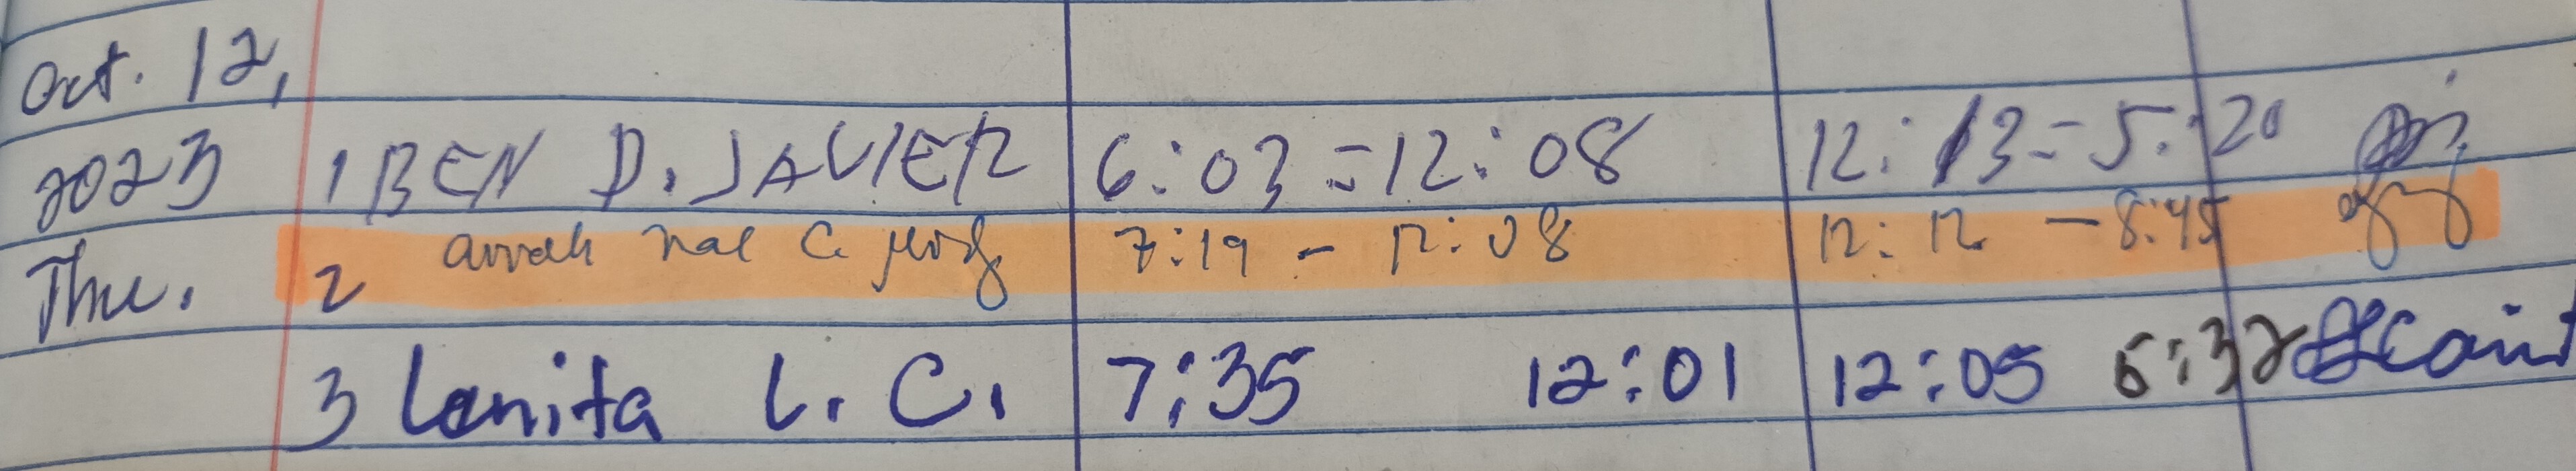 Oct. 12,
2023 1 BEN D. JAVIER 6:03 = 12:08 12:13 = 5:20
Thu. 2 nae C. 7:19 - 12:08 12:12 - 8:45
3 Lanita L. C. 7:35 12:01 12:05 5:32